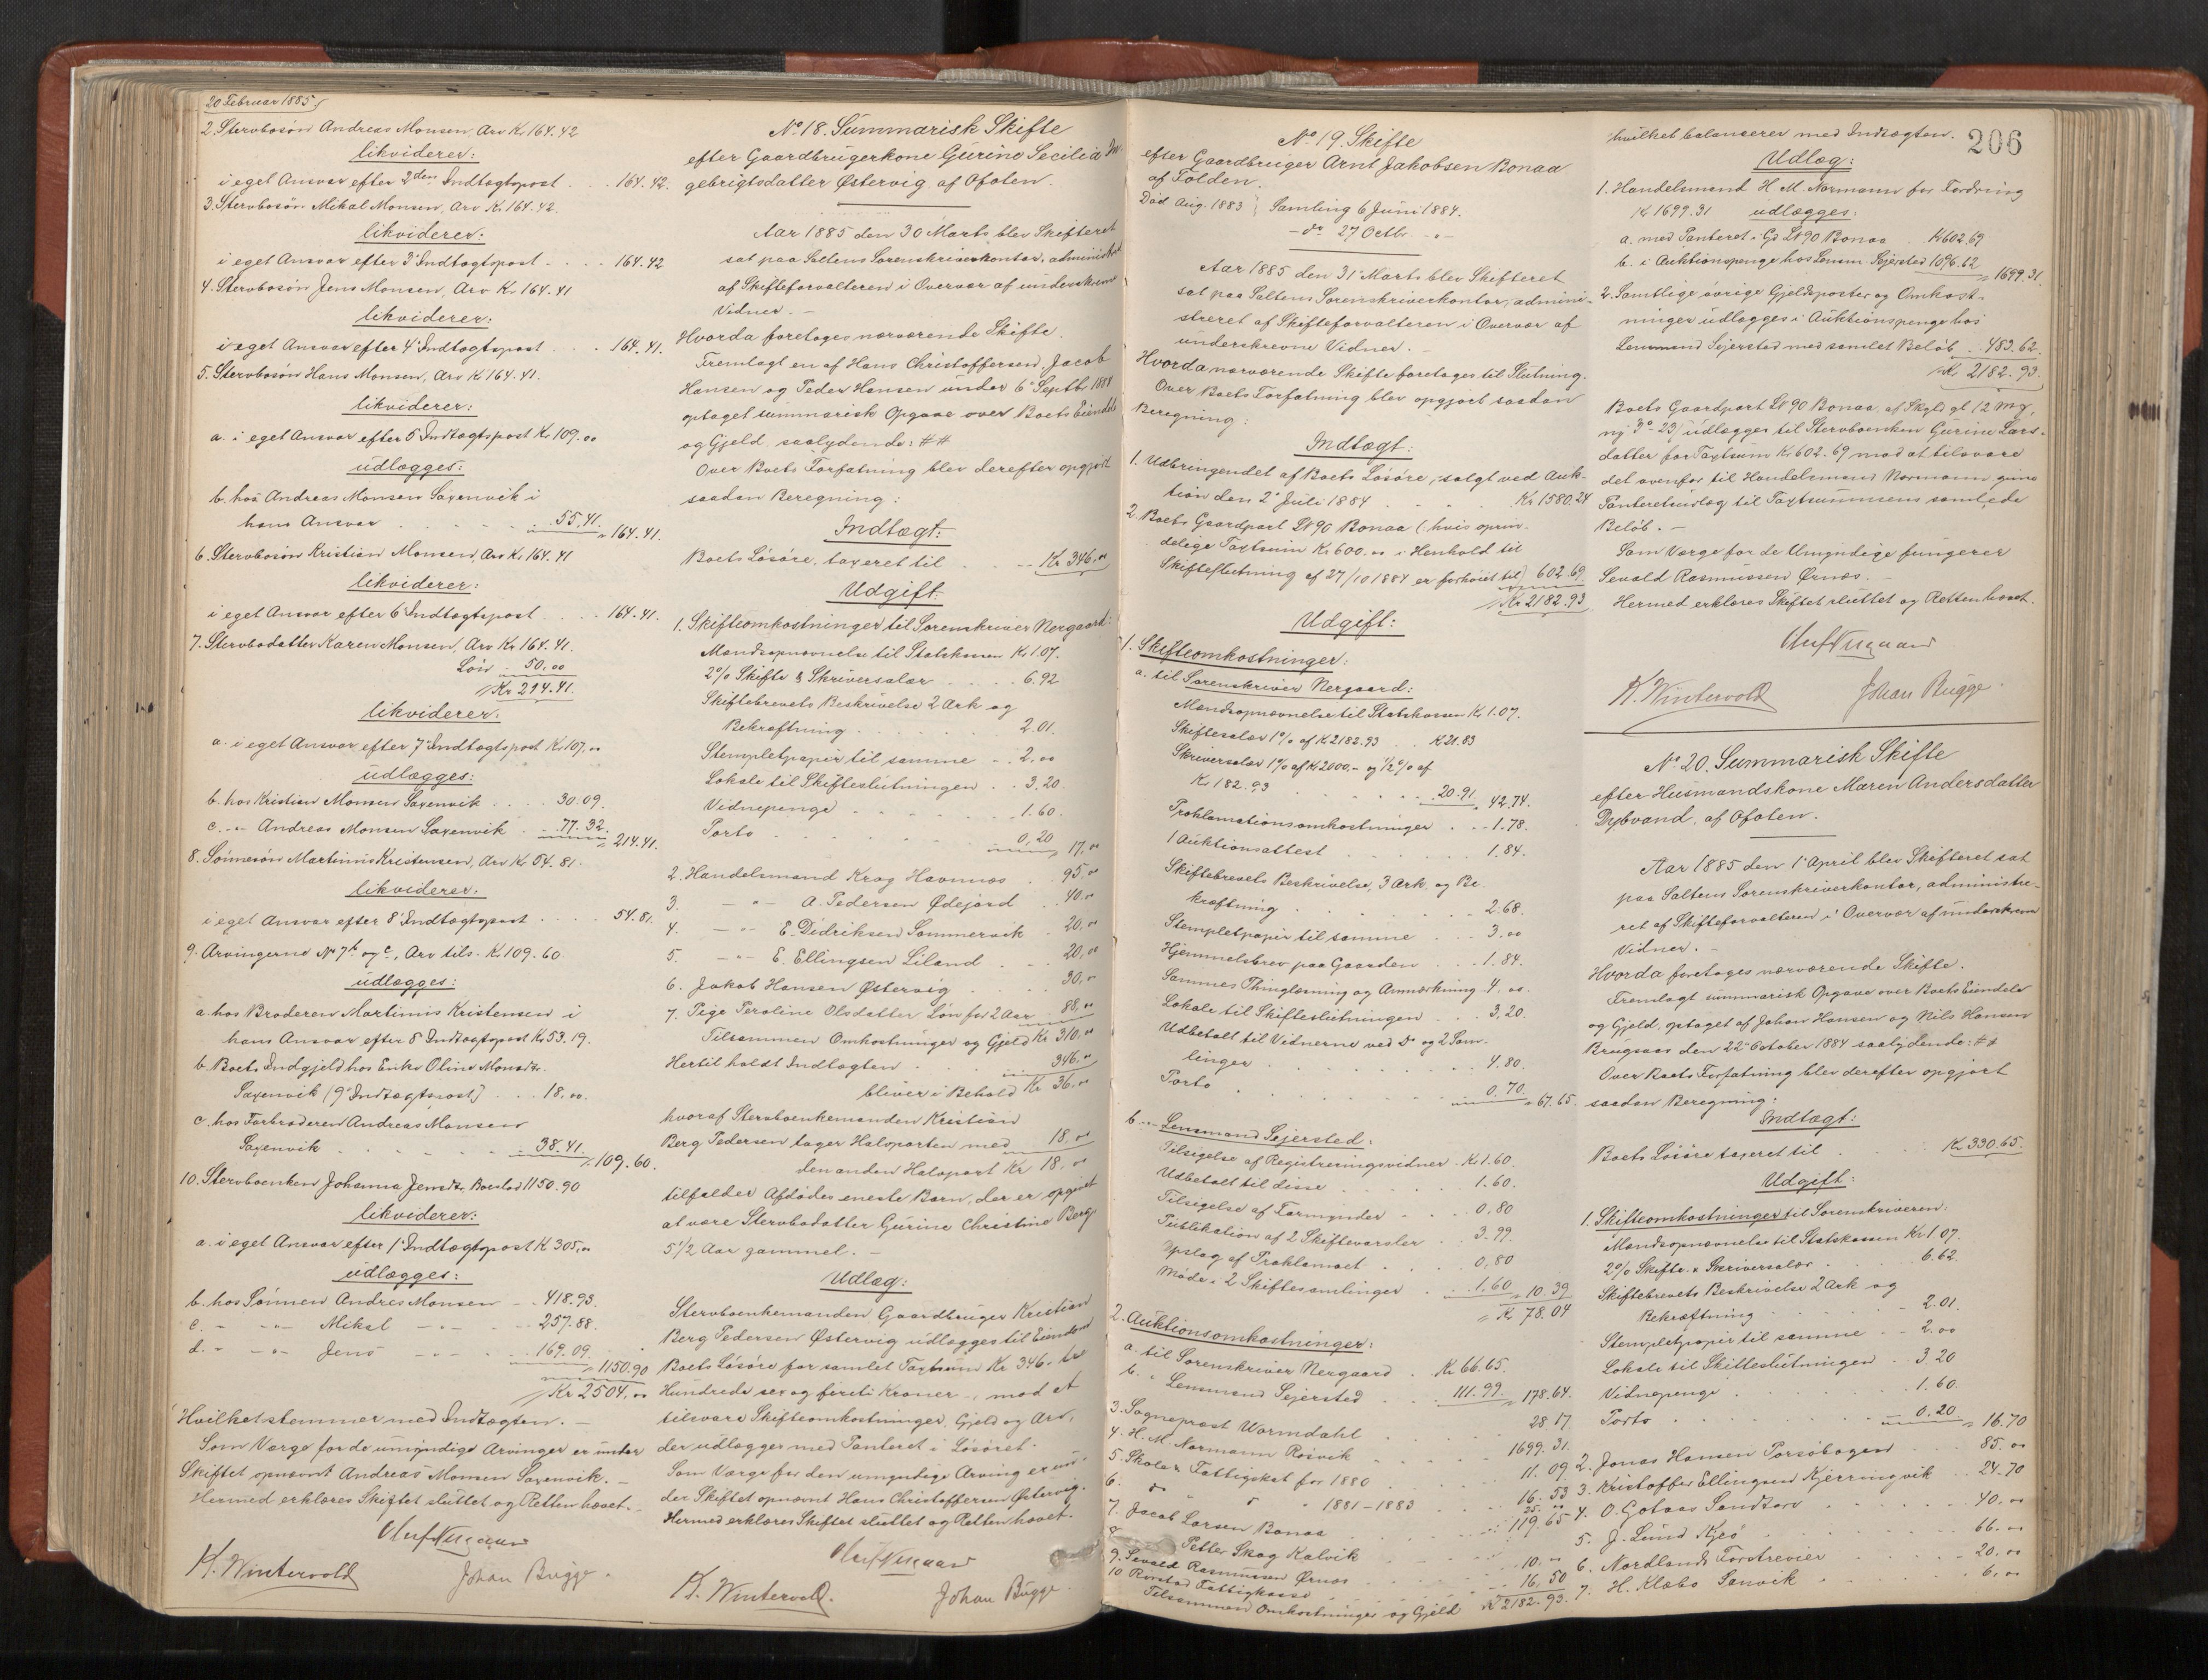 20 Februar 1885
2. Stervbosøn Andreas Monsen, Arv Kr 164.42
likviderer:
i eget Ansvar efter 2den Indtægtspost . . . 164.42.
3. Stervbosøn Mikal Monsen, Arv Kr 164.42.
likviderer:
i eget Ansvar efter 3' Indtægtspost . . . . 164.42
4. Stervbosøn Jens Monsen, Arv Kr 164.41
likviderer:
i eget Ansvar efter 4' Indtægtspost . . . 164.41.
5. Stervbosøn Hans Monsen, Arv Kr 164.41.
likviderer:
a. i eget Ansvar efter 5' Indtægtspost Kr 109.00
udlægges:
b. hos Andreas Monsen Saxenvik i
hans Ansvar . . . . . 55.41. " 164.41.
6. Stervbosøn Kristian Monsen, Arv Kr 164.41
likviderer:
i eget Ansvar efter 6' Indtægtspost . . . 164.41.
7. Stervbodatter Karen Monsen, Arv Kr 164.41.
Løn . 50.00
Kr 214.41.
likviderer:
a. i eget Ansvar efter 7' Indtægtspost Kr 107.00
udlægges:
b. hos Kristian Monsen Saxenvik . . . . 30.09.
c. -"- Andreas Monsen Saxenvik . . 77.32. " 214.41.
8. Sønnesøn Martinus Kristensen, Arv Kr 54.81.
likviderer:
i eget Ansvar efter 8' Indtægtspost . . . . 54.81.
9. Arvingerne No 7b og c, Arv tils. Kr 109.60.
udlægges:
a. hos Broderen Martinus Kristensen i
hans Ansvar efter 8' Indtægtspost Kr 53.19.
b. Boets Indgjeld hos Enke Oline Monsdtr.
Saxenvik (9' Indtægtspost) . . . 18.00.
c. hos Farbroderen Andreas Monsen
Saxenvik . . . . . . 38.41. " 109.60.
10. Stervboenken Johanna Jensdtr, Boeslod 1150.90
likviderer:
a. i eget Ansvar efter 1' Indtægtspost K 305.00
udlægges:
b. hos Sønnen Andreas Monsen - . 418.93.
c. - -"- Mikal -"- . . 257.88.
d. - -"- Jens -"- . . 169.09. " 1150.90
Kr 2504.00
Hvilket stemmer med Indtægten. -
Som Værge for de umyndige Arvinger er under
Skiftet opnævnt Andreas Monsen Saxenvik. -
Hermed erklæres Skiftet sluttet og Retten hævet. -
Oluf Nergaard
K. Wintervold Johan Bugge.
No 18. Summarisk Skifte
efter Gaardbrugerkone Gurine Secilia In-
gebrigtsdatter Østervig af Ofoten.
Aar 1885 den 30 Marts blev Skifteret
sat paa Saltens Sorenskriverkontor, administreret
af Skifteforvalteren i Overvær af underskrevne
Vidner. -
Hvorda foretoges nærværende Skifte.
Fremlagt en af Hans Christoffersen, Jacob
Hansen og Peder Hansen under 6' Septbr 1884
optaget summarisk Opgave over Boets Eiendele
og Gjeld, saalydende: ##
Over Boets Forfatning blev derefter opgjort
saadan Beregning:
Indtægt:
Boets Løsøre, taxeret til . . . Kr 346.00
Udgift:
1. Skifteomkostninger til Sorenskriver Nergaard:
Mandsopnævnelse til Statskassen Kr 1.07.
2% Skifte & Skriversalær . . . . 6.92
Skiftebrevets Beskrivelse 2 Ark og
Bekræftning . . . . . . 2.01.
Stempletpapir til samme . . 2.00
Lokale til Skifteslutningen . . 3.20.
Vidnepenge . . . . . 1.60.
Porto . . . . . . 0.20 " 17.00
2. Handelsmand Krog Havnnæs . 95.00
3. -"- A. Pedersen Ødejord . . 40.00
4. -"- E. Didriksen Sommervik . 20.00
5. -"- E. Ellingsen Liland . . 20.00
6. Jakob Hansen Østervig . . . 30.00
7. Pige Peroline Olsdatter Løn for 2 Aar 88.00
Tilsammen Omkostninger og Gjeld Kr 310.00
Hertil holdt Indtægten . . . 346.00
bliver i Behold Kr 36.00
hvoraf Stervboenkemanden Kristian
Berg Pedersen tager Halvparten med . 18.00
den anden Halvpart Kr 18.00
tilfalder Afdødes eneste Barn, der er opgivet
at være Stervbodatter Gurine Christine Berg
5 1/2 Aar gammel. -
Udlæg:
Stervboenkemanden Gaardbruger Kristian
Berg Pedersen Østervig udlægges til Eiendom
Boets Løsøre for samlet Taxtsum Kr 346. tre
Hundrede sex og firti Kroner -, mod at
tilsvare Skifteomkostninger, Gjeld og Arv,
der udlægges med Panteret i Løsøret.
Som Værge for den umyndige Arving er un-
der Skiftet opnævnt Hans Christoffersen Østervig.
Hermed erklæres Skiftet sluttet og Retten hævet.
Oluf Nergaard
K. Wintervold. Johan Bugge.
No 19. Skifte
efter Gaardbruger Arnt Jakobsen Bonaa
af Folden.
Død Aug. 1883 } Samling 6 Juni 1884.
- do 27 Octbr. -"-
Aar 1885 den 31' Marts blev Skifteret
sat paa Saltens Sorenskriverkontor, admini-
streret af Skifteforvalteren i Overvær af
underskrevne Vidner. -
Hvorda nærværende Skifte foretoges til Slutning.
Over Boets Forfatning blev opgjort saadan
Beregning:
Indtægt:
1. Udbringendet af Boets Løsøre, solgt ved Auk-
tion den 2' Juli 1884 . . . . Kr 1580.24
2. Boets Gaardpart LN 90 Bonaa (: hvis oprin-
delige Taxtsum Kr 600.00 i Henhold til
Skifteslutning af 27/10 1884 er forhøiet til) 602.69.
Kr 2182.93
Udgift:
1. Skifteomkostninger:
a. til Sorenskriver Nergaard:
Mandsopnævnelse til Statskassen Kr 1.07.
Skiftesalær 1% af Kr 2182.93 . . Kr 21.83
Skriversalær 1% af Kr 2000,- og 1/2% af
Kr 182.93 . . . . . 20.91. " 42.74.
Proklamationsomkostninger . . . 1.78.
1 Auktionsattest . . . . . 1.84.
Skiftebrevets Beskrivelse, 3 Ark, og Be-
kræftning . . . . . . 2.68.
Stempletpapir til samme . . . 3.00
Hjemmelsbrev paa Gaarden . . . 1.84.
Sammes Thinglæsning og Anmærkning . 4.00.
Lokale til Skifteslutningen . . . 3.20.
Udbetalt til Vidnerne ved Do og 2 Sam-
linger . . . . . . 4.80.
Porto . . . . . . 0.70. " 67.65.
b. -"- Lensmand Sejersted:
Tilsigelse af Registreringsvidner . Kr 1.60.
Udbetalt til disse . . . . 1.60.
Tilsigelse af Formynder . . . 0.80
Publikation af 2 Skiftevarsler . . 3.99.
Opslag af Proklamaet . . . . 0.80
Møde i 2 Skiftesamlinger . . . 1.60 " 10.39
Kr 78.04
2. Auktionsomkostninger:
a. til Sorenskriver Nergaard . Kr 66.65.
b. " Lensmand Sejersted . . . 111.99. " 178.64.
3. Sogneprest Wormdahl . . . . 28.17.
4. H. M. Normann Rösvik . . . . 1699.31.
5. Skole & Fattigskat for 1880 . . . 11.09
6. do " 1881-1883 . . 16.53
7. Jacob Larsen Bonaa . . . . 25.00
8. Petter Skog Kalvik . . . . 119.65
9. Sevald Rasmussen Ørnæs . . . 10.00
10 Rørstad Fattigkasse . . . . 16.50
Tilsammen Omkostninger og Gjeld Kr 2182.93.
206
hvilket balanserer med Indtægten.
Udlæg:
1. Handelsmand H M Normann for Fordring
Kr 1699.31 udlægges:
a. med Panteret i Gd LN 90 Bonaa . Kr 602.69
b. i Auktionspenge hos Lensm. Sejersted 1096.62 " 1699.31.
2. Samtlige øvrige Gjeldsposter og Omkost-
ninger udlægges i Auktionspenge hos
Lensmand Sejersted med samlet Beløb . . 483.62.
Kr 2182.93.
Boets Gaardpart LN 90 Bonaa, af Skyld gl 12 Mg,
ny 3o-23/ udlægges til Stervboenken Gurine Lars-
datter for Taxtsum Kr 602.69 mod at tilsvare
det ovenfor til Handelsmand Normann givne
Panteretsudlæg til Taxtsummens samlede
Beløb. -
Som Værge for de Umyndige fungerer
Sevald Rasmussen Ørnæs. -
Hermed erklæres Skiftet sluttet og Retten hævet.
Oluf Nergaard
K. Wintervold Johan Bugge.
No 20. Summarisk Skifte
efter Husmandskone Maren Andersdatter
Dybvand, af Ofoten.
Aar 1885 den 1' April blev Skifteret sat
paa Saltens Sorenskriverkontor, administre-
ret af Skifteforvalteren i Overvær af underskrevne
Vidner. -
Hvorda foretoges nærværende Skifte.
Fremlagt summarisk Opgave over Boets Eiendele
og Gjeld, optaget af Johan Hansen og Nils Hansen
Brugsaas den 22' October 1884 saalydende: ##
Over Boets Forfatning blev derefter opgjort
saadan Beregning:
Indtægt:
Boets Løsøre taxeret til . . . Kr 330.65.
Udgift:
1. Skifteomkostninger til Sorenskriveren:
Mandsopnævnelse til Statskassen Kr 1.07.
2% Skifte & Skriversalær . . . 6.62.
Skiftebrevets Beskrivelse 2 Ark og
Bekræftning . . . . . 2.01.
Stempletpapir til samme . . 2.00
Lokale til Skifteslutningen . . 3.20
Vidnepenge . . . . . 1.60.
Porto . . . . . . 0.20 " 16.70
2. Jonas Hansen . . . 85.00
3. Kristoffer Ellingsen Kjerringvik . . 24.70
4. O. Gotaas Sandtorv . . . . 40.00
5. J. Lund Kjeö . . . . 66.00
6. Nordlands Forstrevier . . . 20.00
7. H. Klæbo Sanvik . . . . 6.00